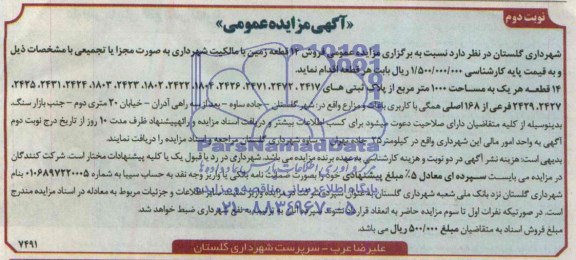 نوبت دوم
«آگهی مزایده عمومی»
شهرداری گلستان در نظر دارد نسبت به برگزاری مزایده عمومی فروش ۱۴ قطعه زمین با مالکیت شهرداری به صورت مجزا یا تجمیعی با مشخصات ذیل
و به قیمت پایه کارشناسی ۱/۵۰۰/۰۰۰/۰۰۰ ریال بابت هر قطعه اقدام نماید.
۱۴ قطعه هر یک به مساحت ۱۰۰۰ متر مربع از پلاک ثبتی های ۲۴۱۷، ۲۴۷۲، ۲۴۷۱، ۲۴۲۶، ۱۸۰۴، ۲۴۲۲، ۱۸۰۲، ۲۴۲۳، ۱۸۰۳، ۲۴۲۴، ۲۴۳۱، ۲۴۲۵،
۲۴۲۹، ۲۴۲۷ فرعی از ۱۶۸ اصلی همگی با کاربری باغات و مزارع واقع در: شهر گلستان - جاده ساوه - بعد از سه راهی آدران - خیابان ۲۰ متری دوم - جنب بازار سنگ.
بدینوسیله از کلیه متقاضیان دارای صلاحیت دعوت میشود برای کسب اطلاعات بیشتر و دریافت اسناد مزایده و ارائه پیشنهاد ظرف مدت ۱۰ روز از تاریخ درج نوبت دوم
آگهی به واحد امور مالی این شهرداری واقع در کیلومتر ۲۵ جاده ساوه شهرداری گلستان مراجعه و اسناد مزایده را دریافت نمایند.
بدیهی است: هزینه نشر آگهی در دو نوبت و هزینه کارشناسی به عهده برنده مزایده می باشد. شهرداری در رد یا قبول یک یا کلیه پیشنهادات مختار است. شرکت کنندگان
در مزایده می بایست سپرده ای معادل ۵٪ مبلغ پیشنهادی خود را بصورت ضمانت نامه بانکی یا واریز وجه نقد به حساب سیبا به شماره ۰۱۰۶۸۹۷۲۲۰۰۵ بنام
شهرداری گلستان نزد بانک ملی شعبه شهرداری گلستان به عنوان سپرده شرکت در مزایده واریز نمایند. سایر اطلاعات و جزئیات مربوط به معادله در اسناد مزایده مندرج
است. در صورتیکه نفرات اول تا سوم مزایده حاضر به انعقاد قرارداد نشوند سپرده آنان به ترتیب به نفع شهرداری ضبط خواهد شد.
مبلغ فروش اسناد به متقاضیان مبلغ ۵۰۰/۰۰۰ ریال می باشد.
علیرضا عرب - سرپرست شهرداری گلستان
۷۴۹۱
ParsNamadData
پایگاه اطلاع رسانی مناقصه و مزایده
۰۲۱-۸۸۳۴۹۶۷۰-۵